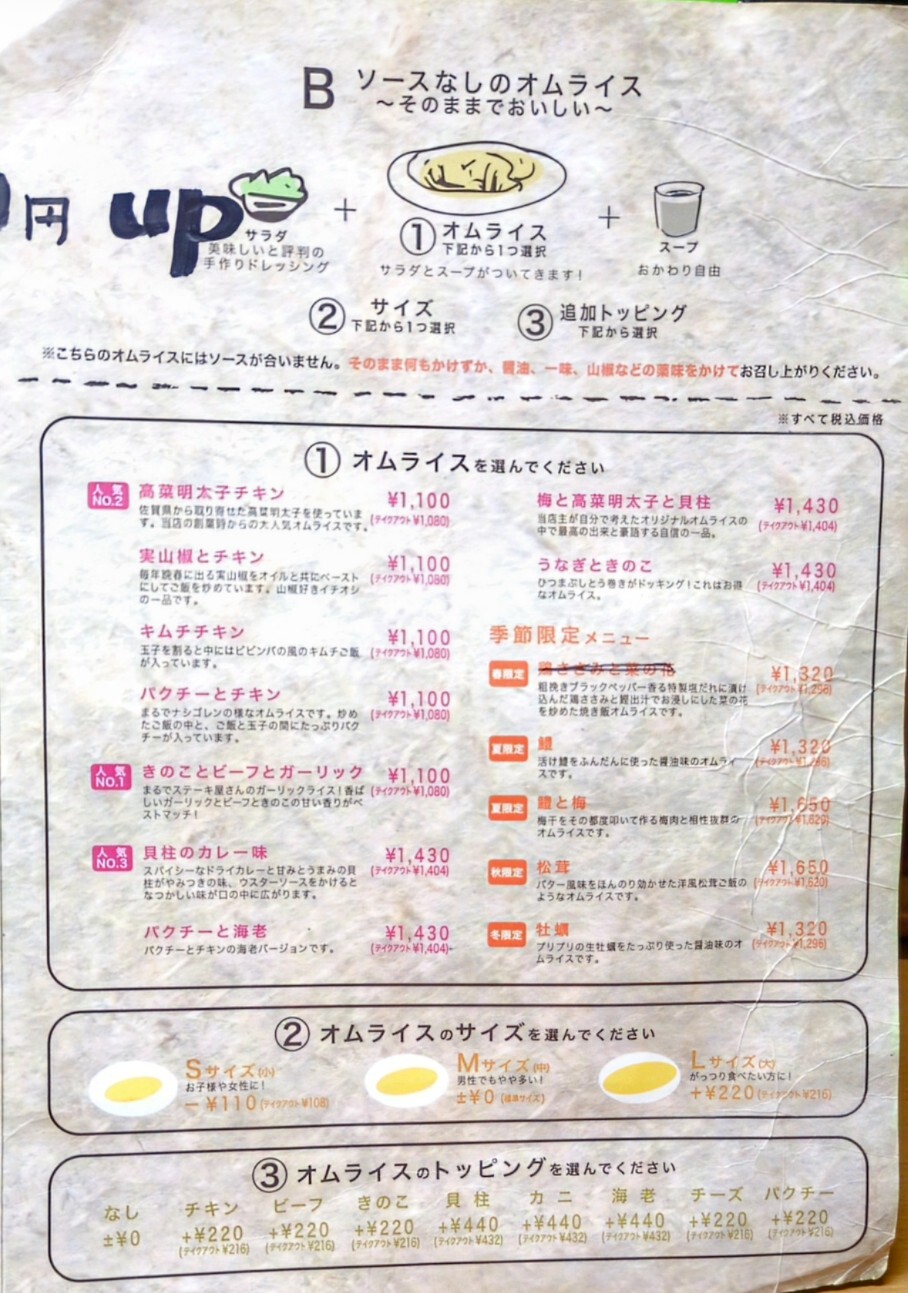 B ソースなしのオムライス
〜そのままでおいしい〜
円 up
サラダ
美味しいと評判の
手作りドレッシング
+
① オムライス
下記から1つ選択
サラダとスープがついてきます!
+
スープ
おかわり自由
② サイズ
下記から1つ選択
③ 追加トッピング
下記から選択
※こちらのオムライスにはソースが合いません。そのまま何もかけずか、醤油、一味、山椒などの薬味をかけてお召し上がりください。
※すべて税込価格
① オムライスを選んでください
人気 NO.2
高菜明太子チキン ¥1,100
佐賀県から取り寄せた高菜明太子を使っていま
す。当店の創業時からの大人気オムライスです。
(テイクアウト¥1,080)
実山椒とチキン ¥1,100
(テイクアウト¥1,080)
毎年晩春に出る実山椒をオイルと共にペースト
にしてご飯を炒めています。山椒好きイチオシ
の一品です。
キムチチキン ¥1,100
(テイクアウト¥1,080)
玉子を割ると中にはビビンバの風のキムチご飯
が入っています。
パクチーとチキン ¥1,100
(テイクアウト¥1,080)
まるでナシゴレンの様なオムライスです。炒め
たご飯の中と、ご飯と玉子の間にたっぷりパク
チーが入っています。
人気 NO.1
きのことビーフとガーリック ¥1,100
(テイクアウト¥1,080)
まるでステーキ屋さんのガーリックライス!香ば
しいガーリックとビーフときのこの甘い香りがベ
ストマッチ!
人気 NO.3
貝柱のカレー味 ¥1,430
(テイクアウト¥1,404)
スパイシーなドライカレーと甘みとうまみの貝
柱がやみつきの味、ウスターソースをかけると
なつかしい味が口の中に広がります。
パクチーと海老 ¥1,430
(テイクアウト¥1,404)
パクチーとチキンの海老バージョンです。
梅と高菜明太子と貝柱 ¥1,430
(テイクアウト¥1,404)
当店主が自分で考えたオリジナルオムライスの
中で最高の出来と豪語する自信の一品。
うなぎときのこ ¥1,430
(テイクアウト¥1,404)
ひつまぶしとう巻きがドッキング!これはお得
なオムライス。
季節限定メニュー
春限定
鶏ささみと菜の花 ¥1,320
(テイクアウト¥1,296)
粗挽きブラックペッパー香る特製塩だれに漬け
込んだ鶏ささみと鰹出汁でお浸しにした菜の花
を炒めた焼き飯オムライスです。
夏限定
鱧 ¥1,320
(テイクアウト¥1,296)
活け鱧をふんだんに使った醤油味のオムライ
スです。
夏限定
鱧と梅 ¥1,650
(テイクアウト¥1,620)
梅干をその都度叩いて作る梅肉と相性抜群の
オムライスです。
秋限定
松茸 ¥1,650
(テイクアウト¥1,620)
バター風味をほんのり効かせた洋風松茸ご飯の
ようなオムライスです。
冬限定
牡蠣 ¥1,320
(テイクアウト¥1,296)
プリプリの生牡蠣をたっぷり使った醤油味のオ
ムライスです。
② オムライスのサイズを選んでください
Sサイズ(小)
お子様や女性に!
−¥110(テイクアウト¥108)
Mサイズ(中)
男性でもやや多い!
±¥0(標準サイズ)
Lサイズ(大)
がっつり食べたい方に!
+¥220(テイクアウト¥216)
③ オムライスのトッピングを選んでください
なし チキン ビーフ きのこ 貝柱 カニ 海老 チーズ パクチー
±¥0 +¥220 +¥220 +¥220 +¥440 +¥440 +¥440 +¥220 +¥220
(テイクアウト¥216) (テイクアウト¥216) (テイクアウト¥216) (テイクアウト¥432) (テイクアウト¥432) (テイクアウト¥432) (テイクアウト¥216) (テイクアウト¥216)